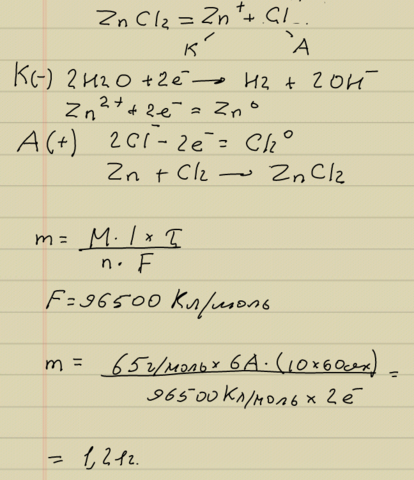 ZnCl2 = Zn⁺ + Cl⁻..
K A
K(-) 2H2O + 2e⁻ → H2 + 2OH⁻
Zn²⁺ + 2e⁻ = Zn⁰
A(+) 2Cl⁻ - 2e⁻ = Cl2⁰
Zn + Cl2 → ZnCl2
m = M·I×τ / n·F
F = 96500 Кл/моль
m = 65г/моль × 6А·(10×60сек) / 96500 Кл/моль × 2e⁻ =
= 1,21г.